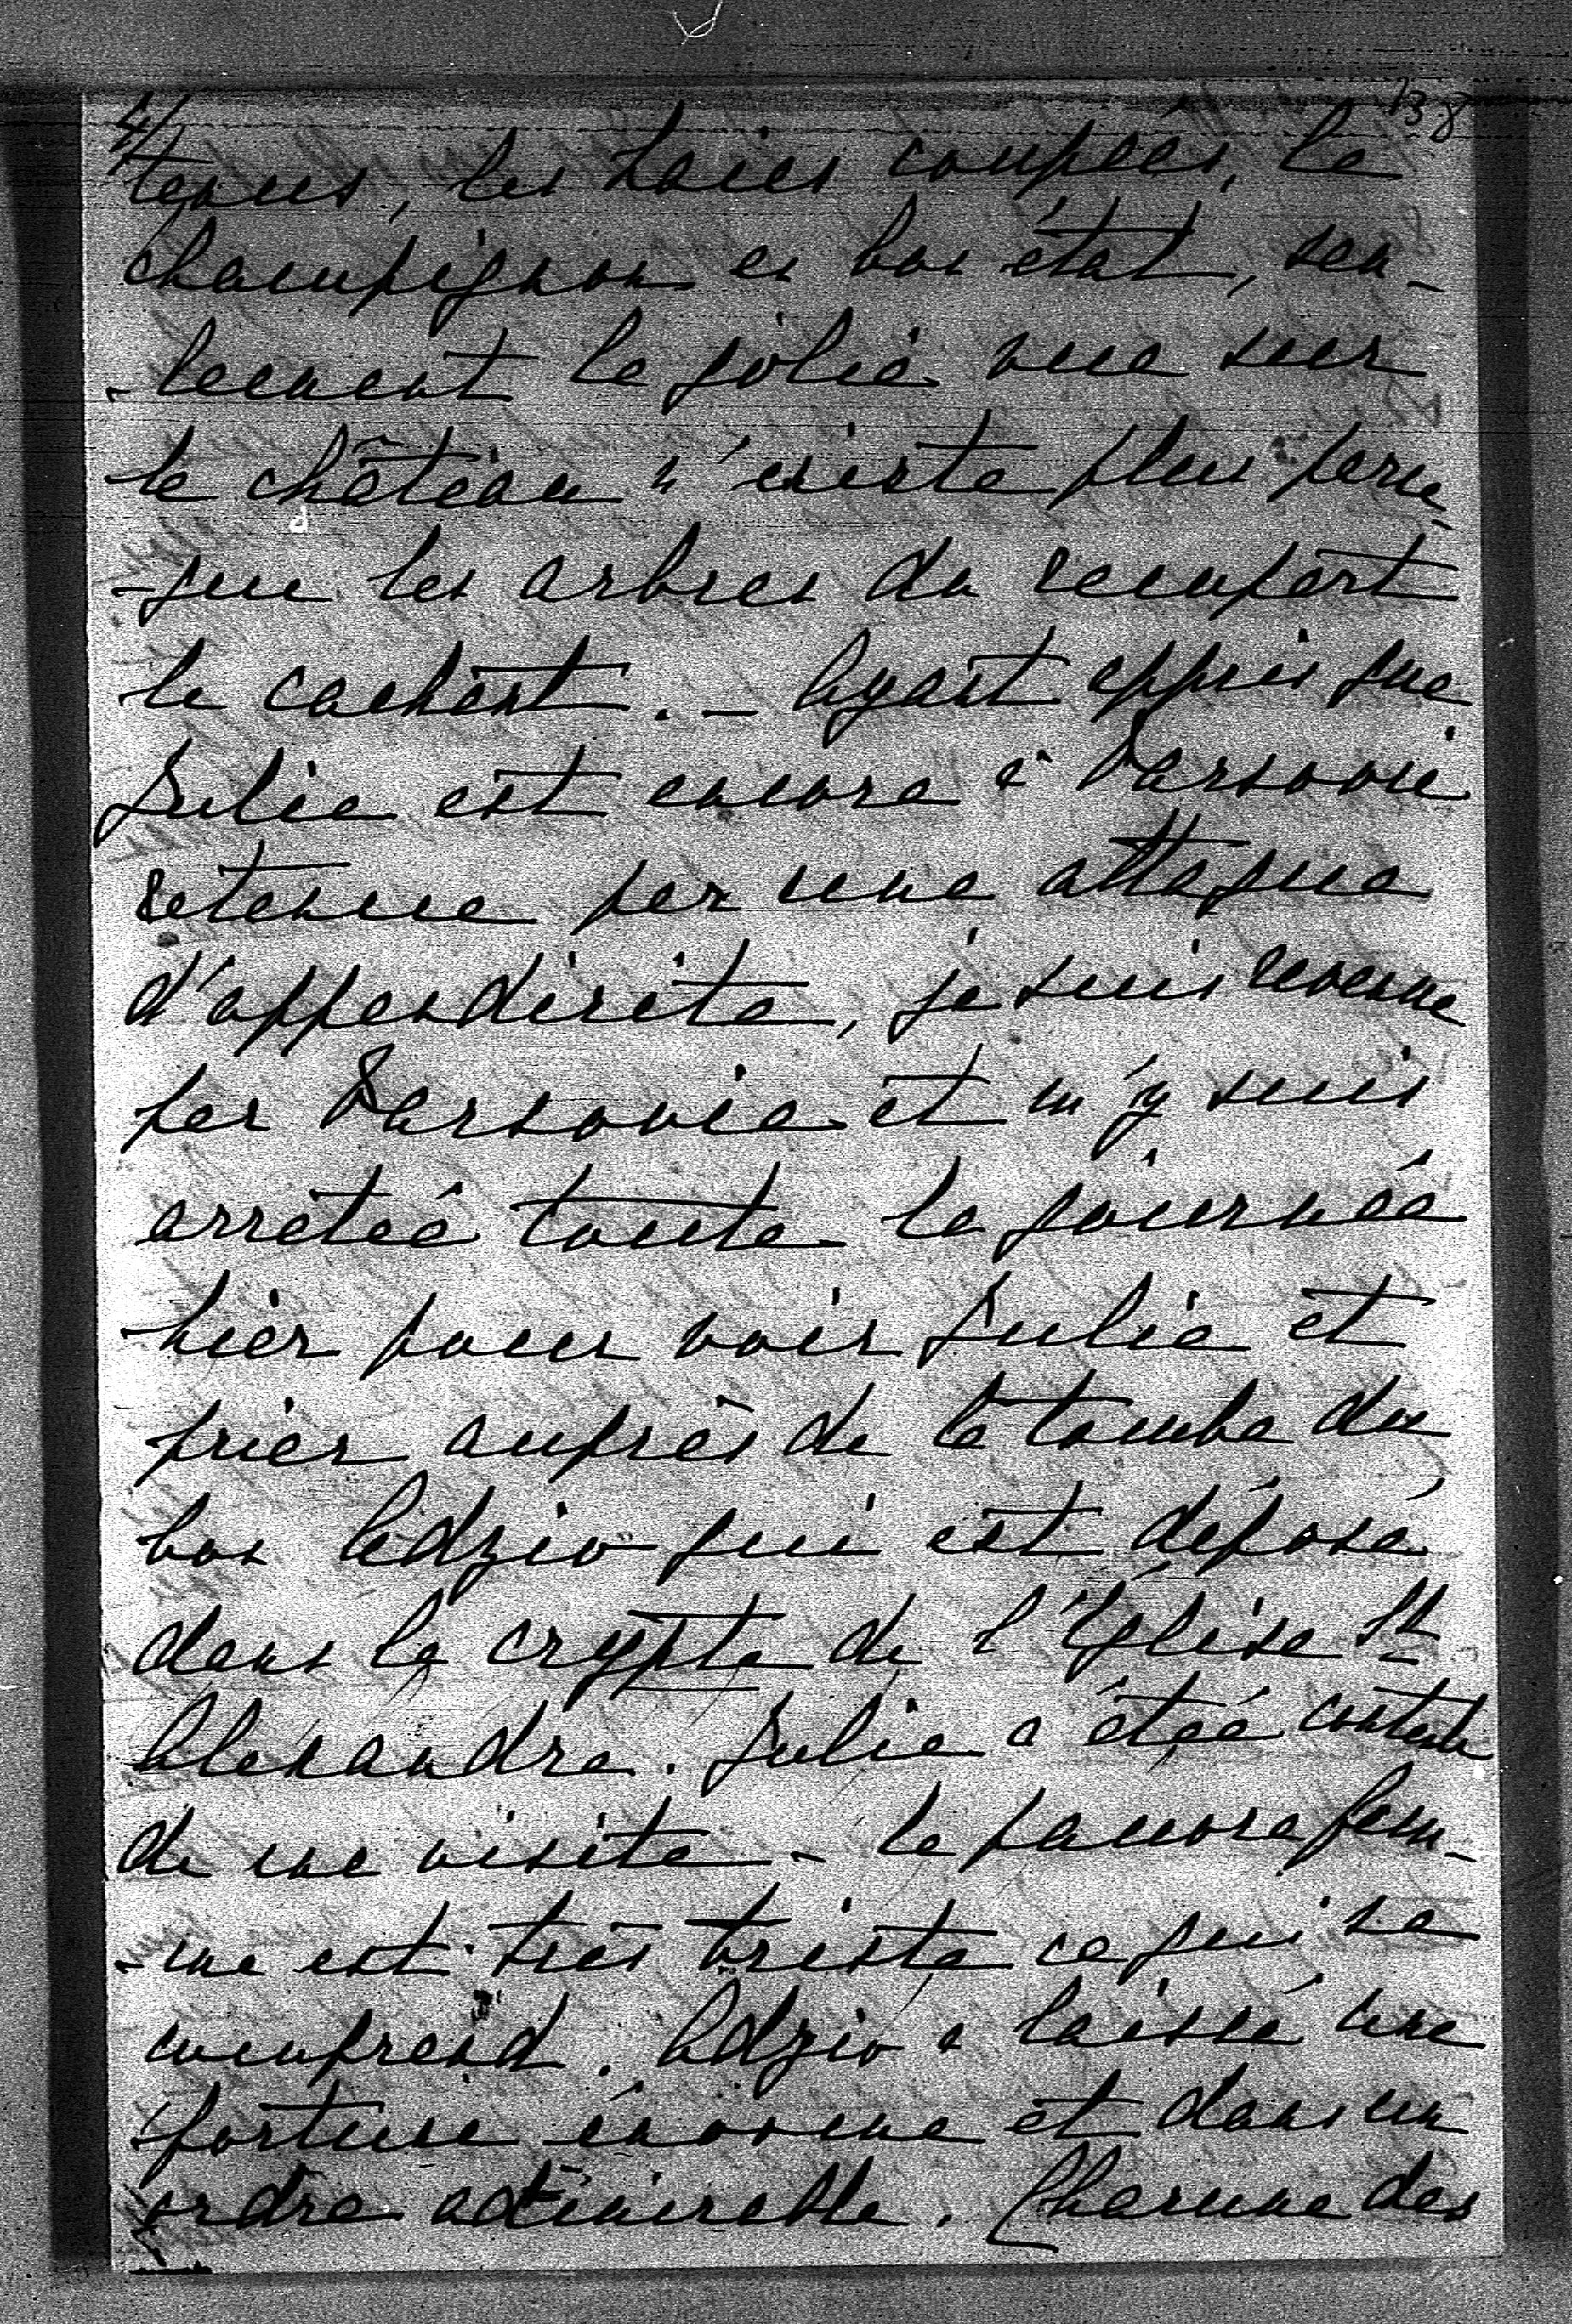 4/ 138
tenus, les haies coupées, le
champignon en bon état, seu-
-lement la jolie vue sur
le château n'existe plus parce
-que les arbres du rempart
le cachent. – Ayant appris que
Julie est encore à Varsovie
retenue par une attaque
d'appendicite, je suis revenue
par Varsovie et m'y suis
arrêtée toute la journée
hier pour voir Julie et
prier auprès de la tombe du
bon Adzio qui est déposé
dans la crypte de l'Église St
Alexandre. Julie a étée contente
de ma visite – la pauvre fem-
-me est très triste ce qui se
comprend. Adzio a laissé une
fortune énorme et dans un
ordre admirable. Chacune des